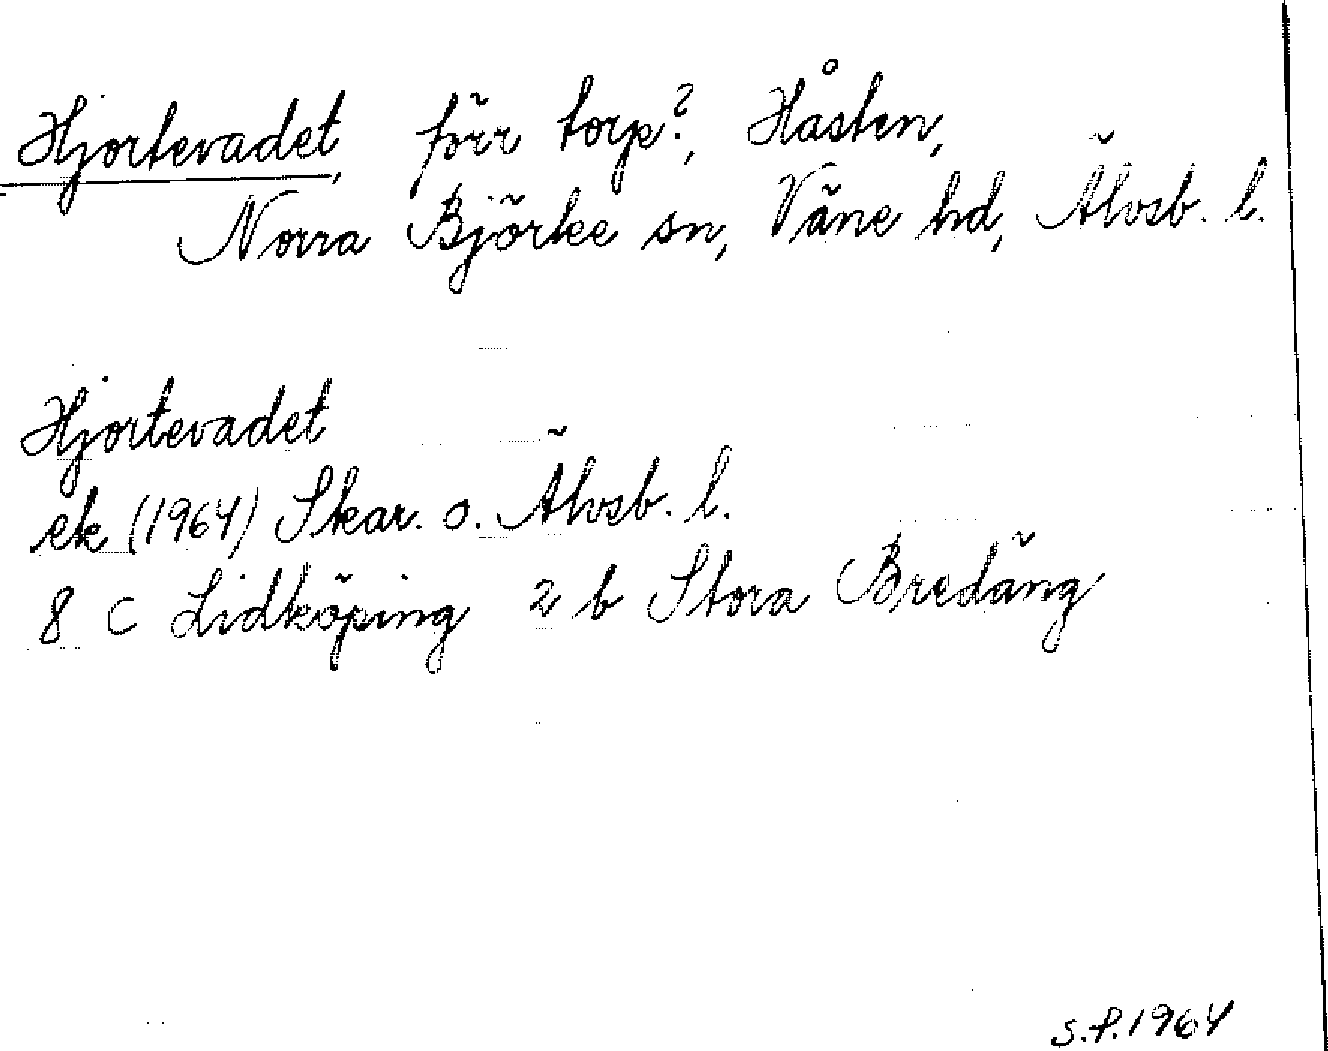 Hjortevadet, förr torp?, Håsten,
Norra Björke sn, Väne hd, Älvsb. l.
Hjortevadet
ek (1964) Skar. o. Älvsb. l.
8 C Lidköping 2 b Stora Bredäng
S.F. 1964